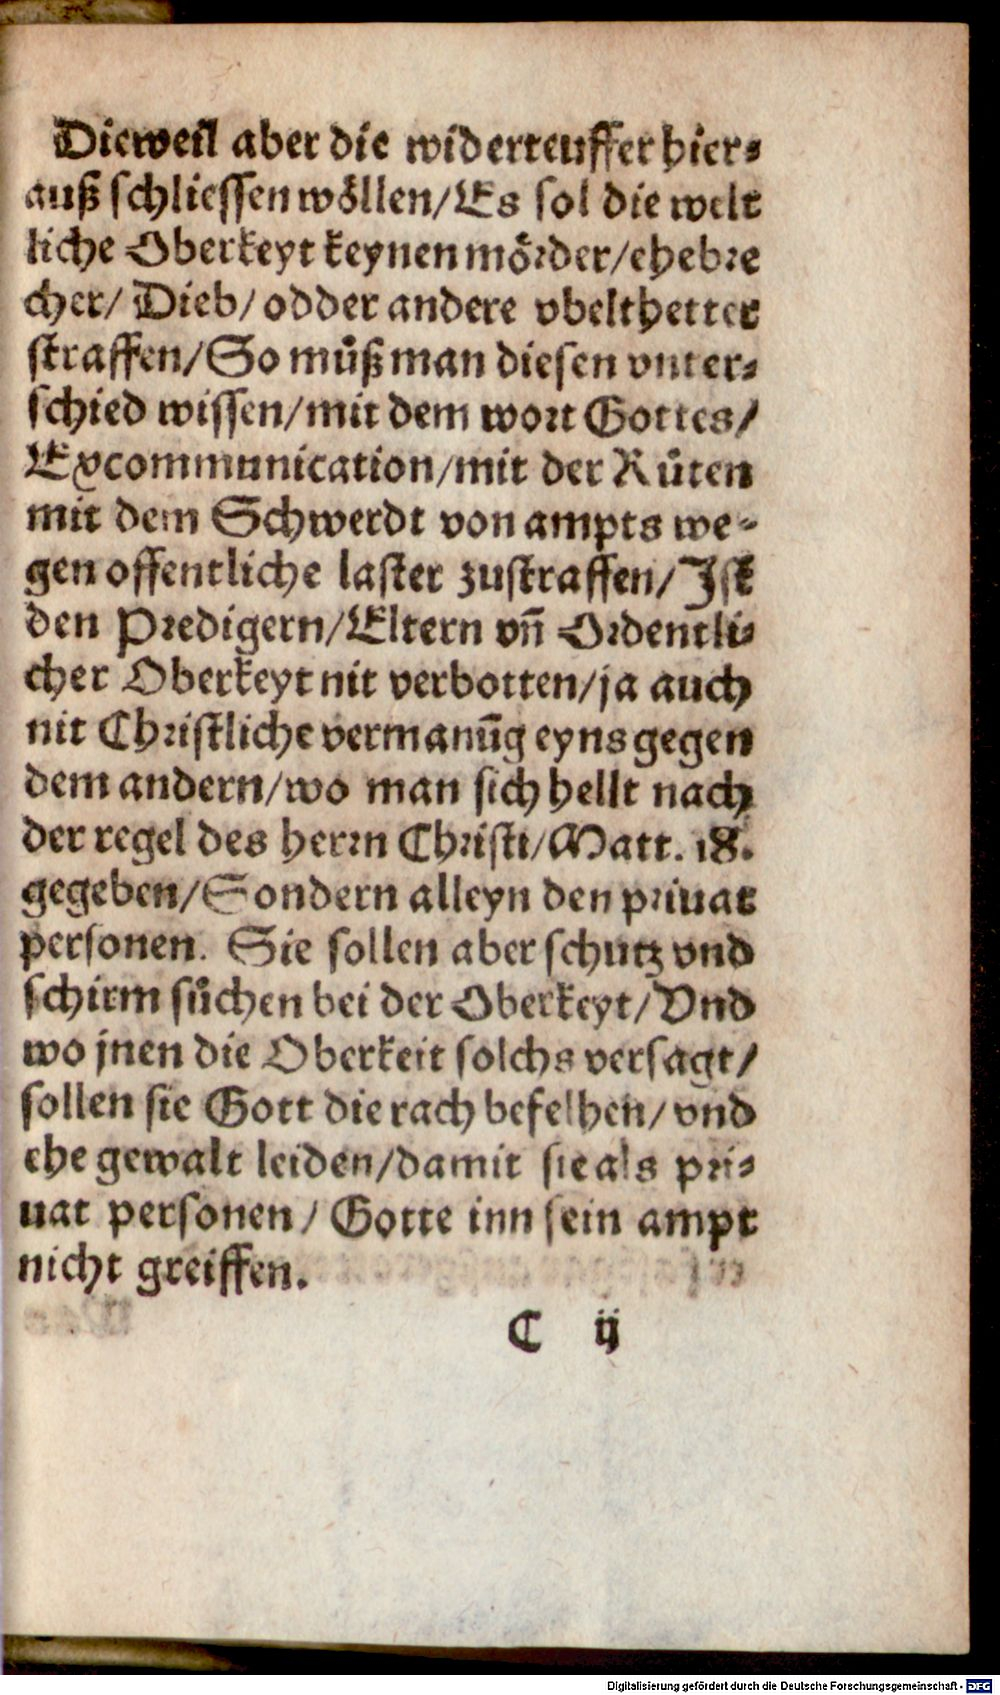 Dieweil aber die widerteuffer hier⸗
auß schliessen wöllen/Es sol die welt
liche Oberkeyt keynen mörder/ehebre
cher/ Dieb/ odder andere vbelthetter
straffen/So muͤß man diesen vnter⸗
schied wissen/mit dem wort Gottes/
Excommunication/mit der Ruͤten
mit dem Schwerdt von ampts we⸗
gen offentliche laster zustraffen/Ist
den Predigern/Eltern vn̄ Ordentli⸗
cher Oberkeyt nit verbotten/ja auch
nit Christliche vermanūg eyns gegen
dem andern/wo man sich hellt nach
der regel des herrn Christi/Matt. 18.
gegeben/Sondern alleyn den priuat
personen. Sie sollen aber schutz vnd
schirm suͤchen bei der Oberkeyt/Vnd
wo jnen die Oberkeit solchs versagt/
sollen sie Gott die rach befelhen/vnd
ehe gewalt leiden/damit sie als pri⸗
uat personen/ Gotte inn sein ampt
nicht greiffen.
C ij
Digitalisierung gefördert durch die Deutsche Forschungsgemeinschaft - DFG